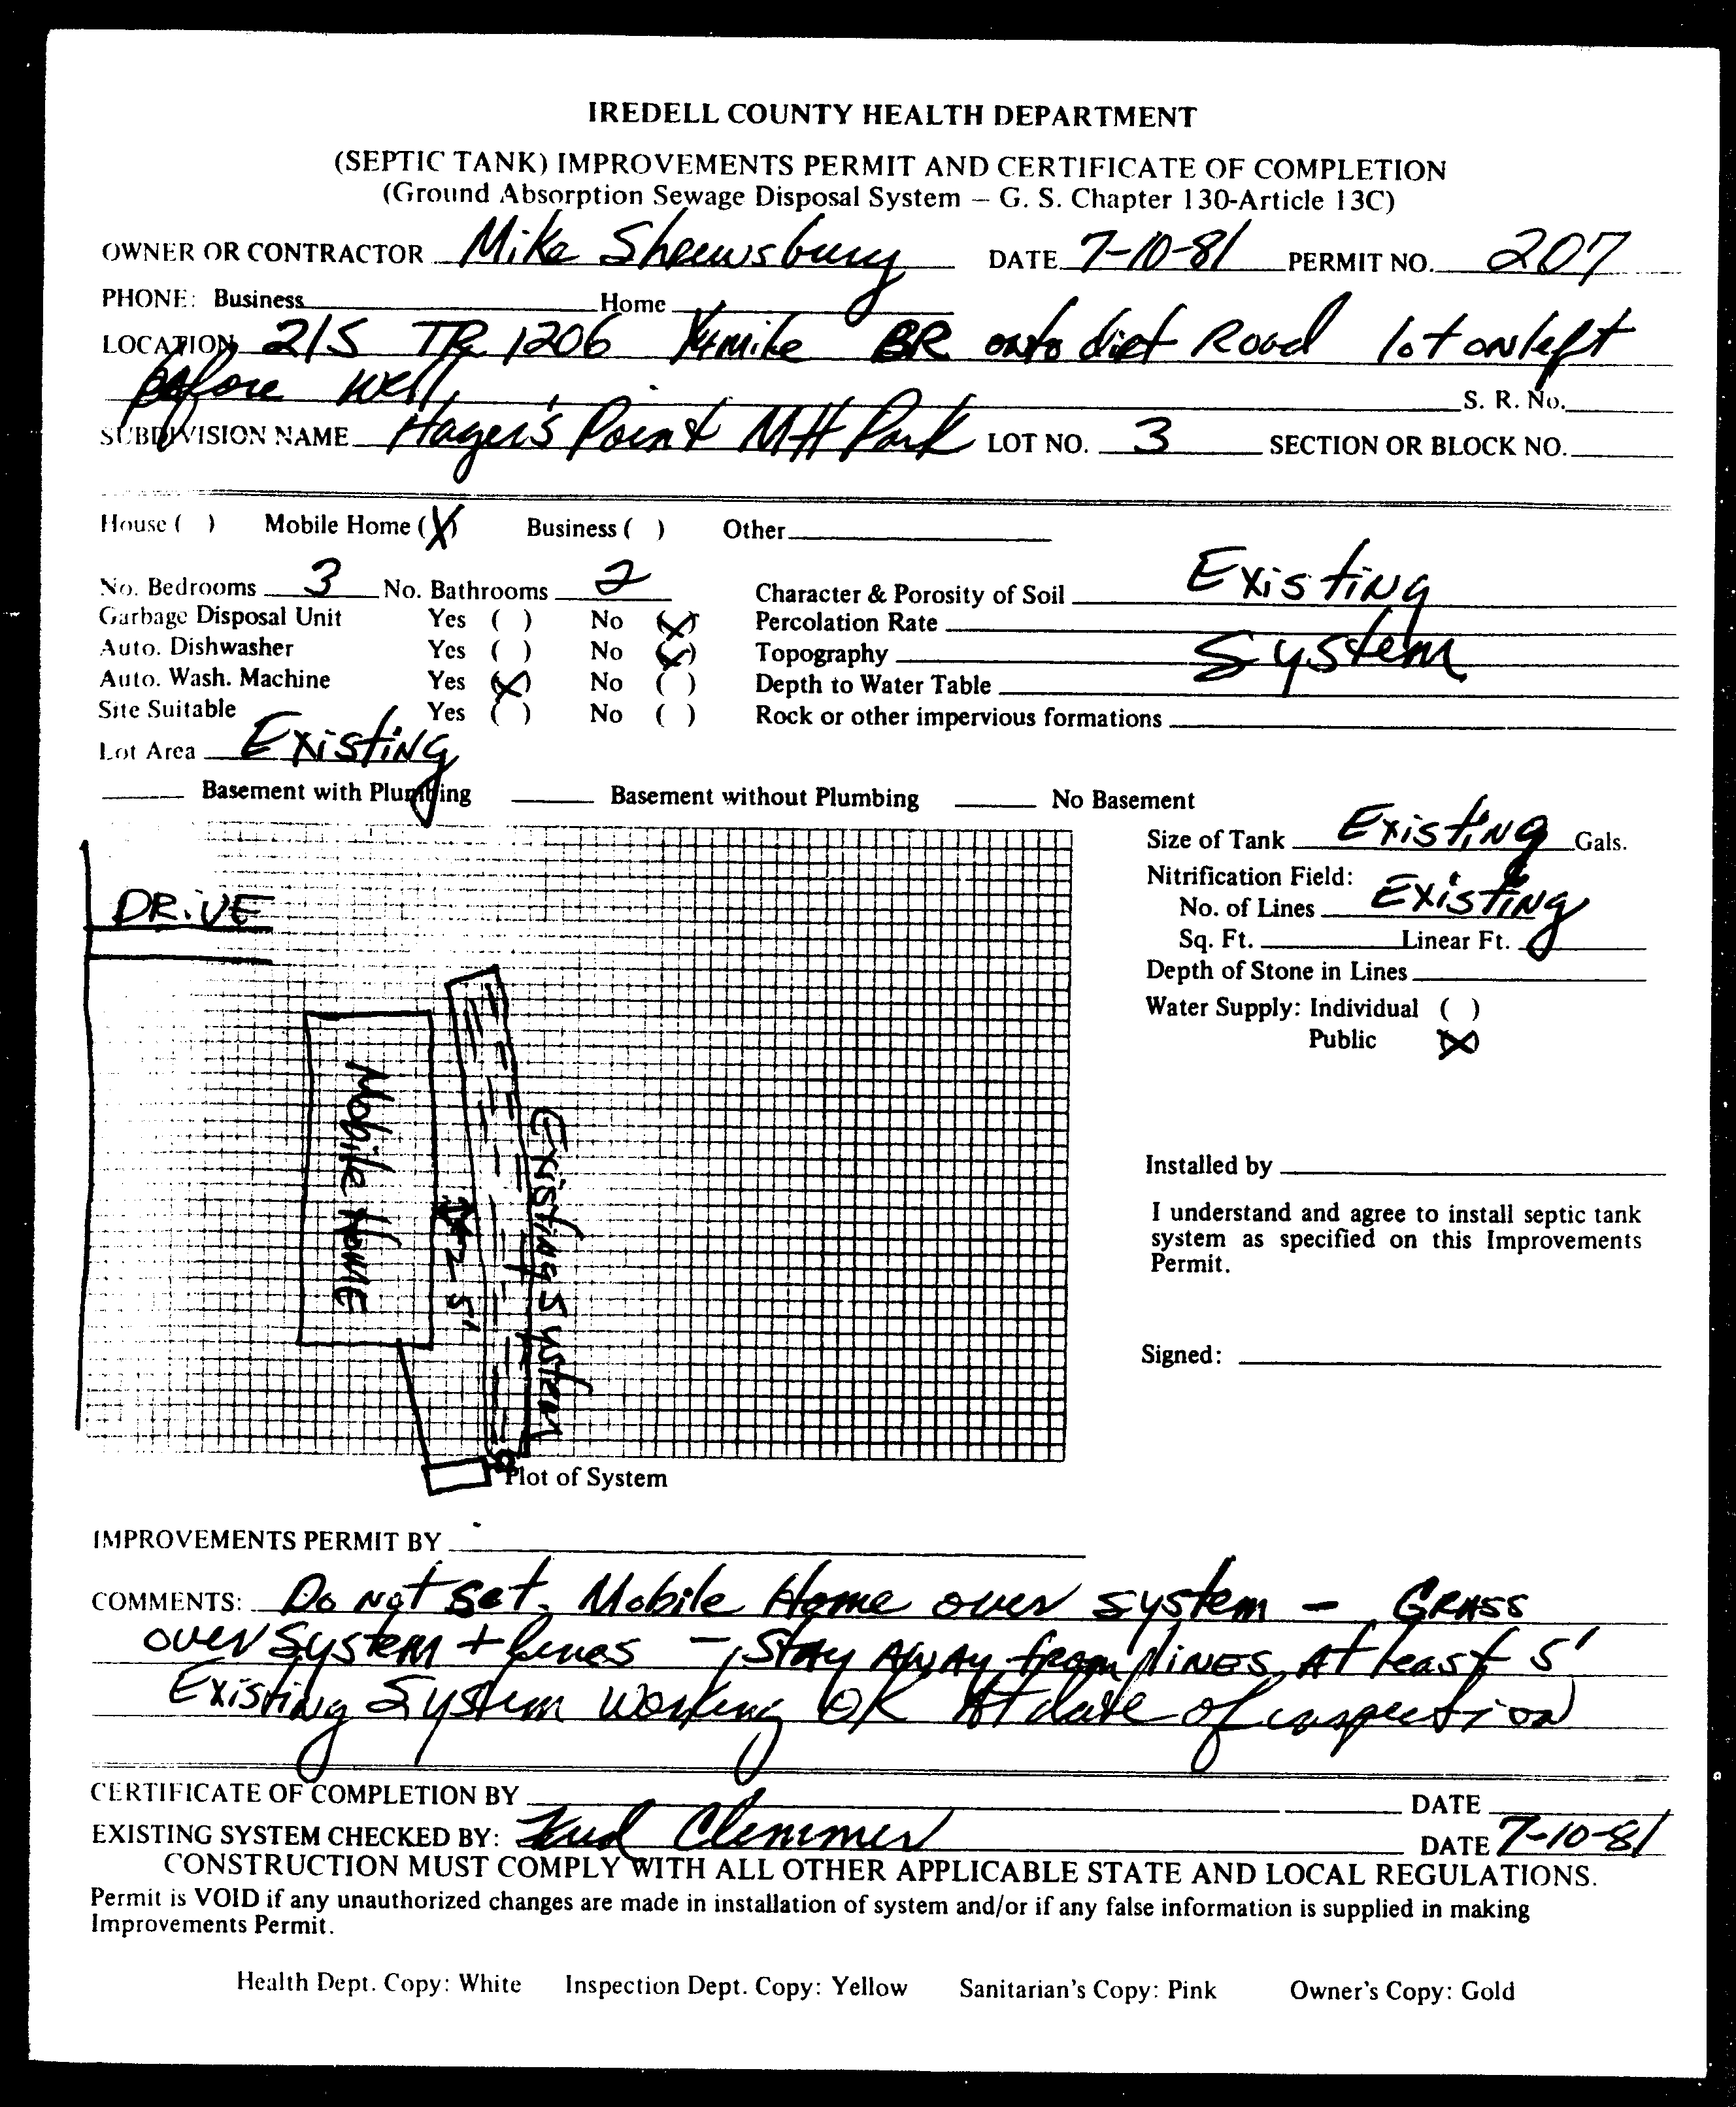 IREDELL COUNTY HEALTH DEPARTMENT
(SEPTIC TANK) IMPROVEMENTS PERMIT AND CERTIFICATE OF COMPLETION
(Ground Absorption Sewage Disposal System – G. S. Chapter 130-Article 13C)
OWNER OR CONTRACTOR Mike Shrewsbury DATE 7-10-81 PERMIT NO. 207
PHONE: Business Home
LOCATION 21S TR 1206 1/4 mile BR onto dirt Road lot on left
before well S. R. No.
SUBDIVISION NAME Hager's Point MH Park LOT NO. 3 SECTION OR BLOCK NO.
House ( ) Mobile Home (X) Business ( ) Other
No. Bedrooms 3 No. Bathrooms 2 Character & Porosity of Soil Existing
Garbage Disposal Unit Yes ( ) No (X) Percolation Rate
Auto. Dishwasher Yes ( ) No (X) Topography System
Auto. Wash. Machine Yes (X) No ( ) Depth to Water Table
Site Suitable Yes ( ) No ( ) Rock or other impervious formations
Lot Area Existing
Basement with Plumbing Basement without Plumbing No Basement
Size of Tank Existing Gals.
Nitrification Field:
No. of Lines Existing
Sq. Ft. Linear Ft.
Depth of Stone in Lines
Water Supply: Individual ( )
Public (X)
Installed by
I understand and agree to install septic tank
system as specified on this Improvements
Permit.
Signed:
DRiVE
Mobile Home
5'
Existing System
Plot of System
IMPROVEMENTS PERMIT BY
COMMENTS: Do Not Set Mobile Home over system - GRASS
over System + lines - STAY AWAY from liNES At least 5'
Existing System working OK At date of inspection
CERTIFICATE OF COMPLETION BY DATE
EXISTING SYSTEM CHECKED BY: Clemmer DATE 7-10-81
CONSTRUCTION MUST COMPLY WITH ALL OTHER APPLICABLE STATE AND LOCAL REGULATIONS.
Permit is VOID if any unauthorized changes are made in installation of system and/or if any false information is supplied in making
Improvements Permit.
Health Dept. Copy: White Inspection Dept. Copy: Yellow Sanitarian's Copy: Pink Owner's Copy: Gold